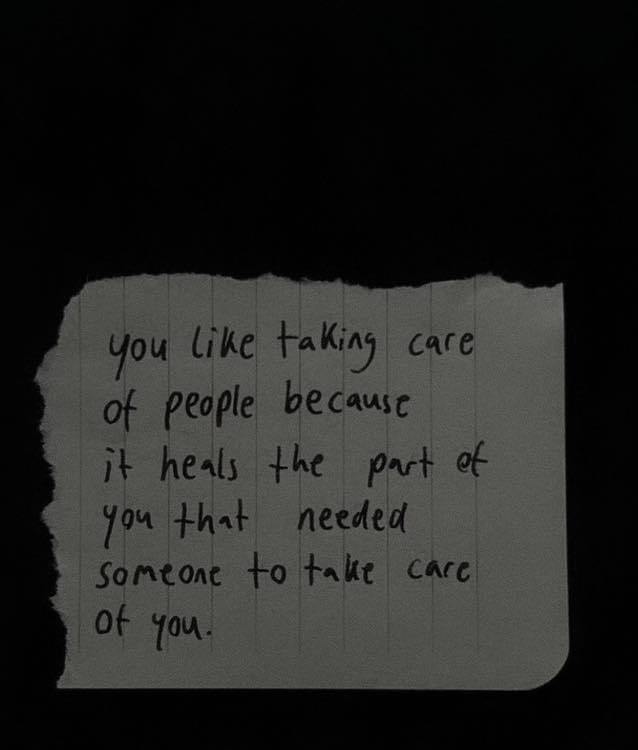 you like taking care
of people because
it heals the part of
you that needed
someone to take care
of you.